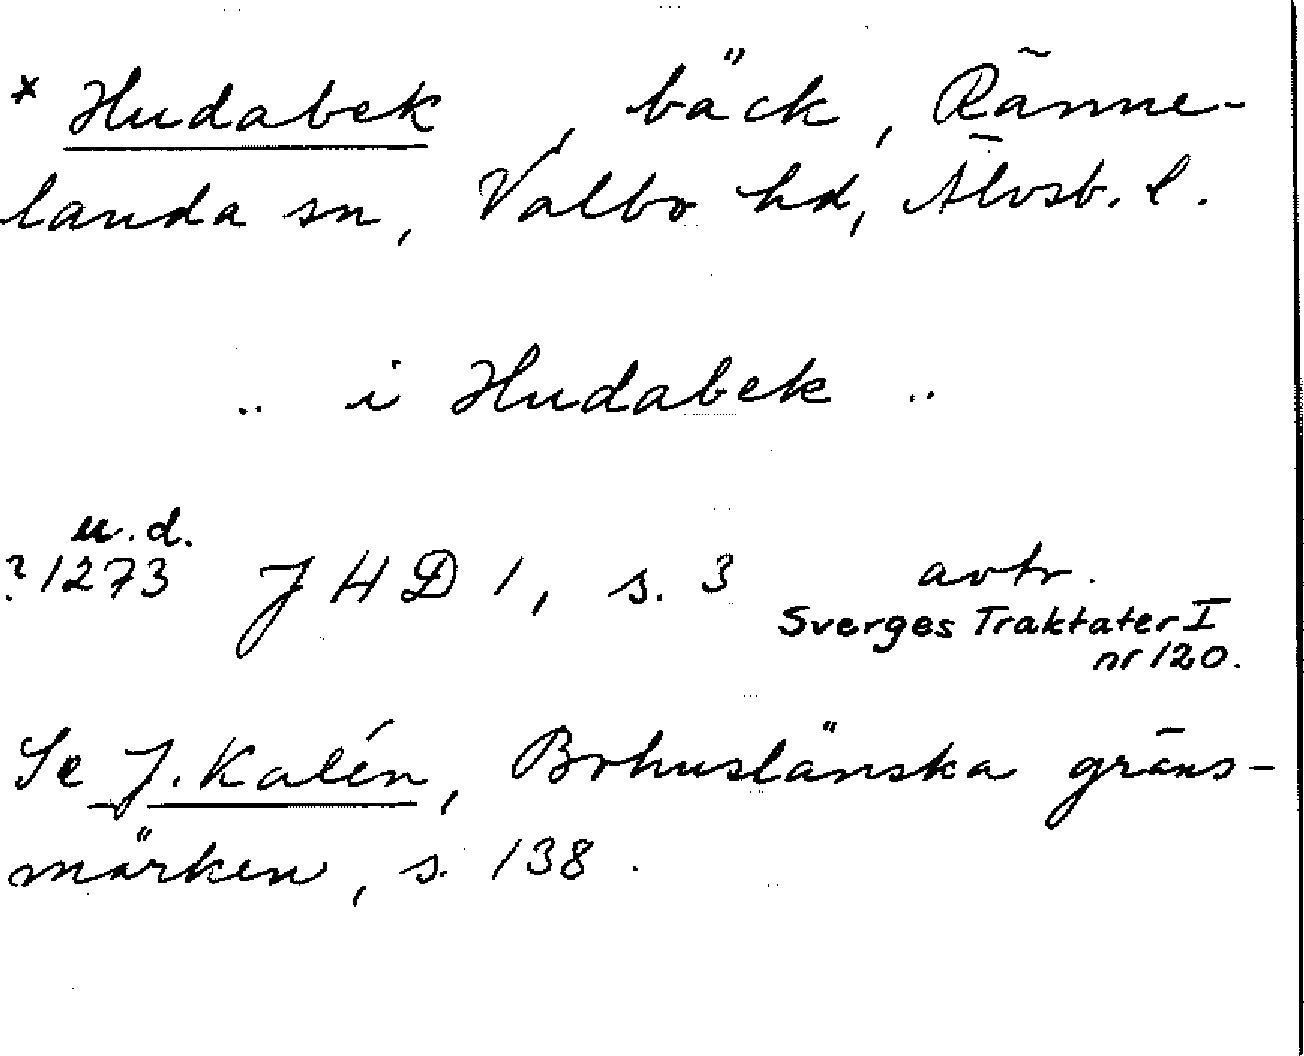 * Hudabek, bäck, Ränne-
landa sn, Valbo hd, Älvsb. l.
.. i Hudabek ..
u.d.
? 1273 JHD 1, s. 3 avtr.
Sverges Traktater I
nr 120.
Se J. Kalén, Bohuslänska gräns-
märken, s. 138.